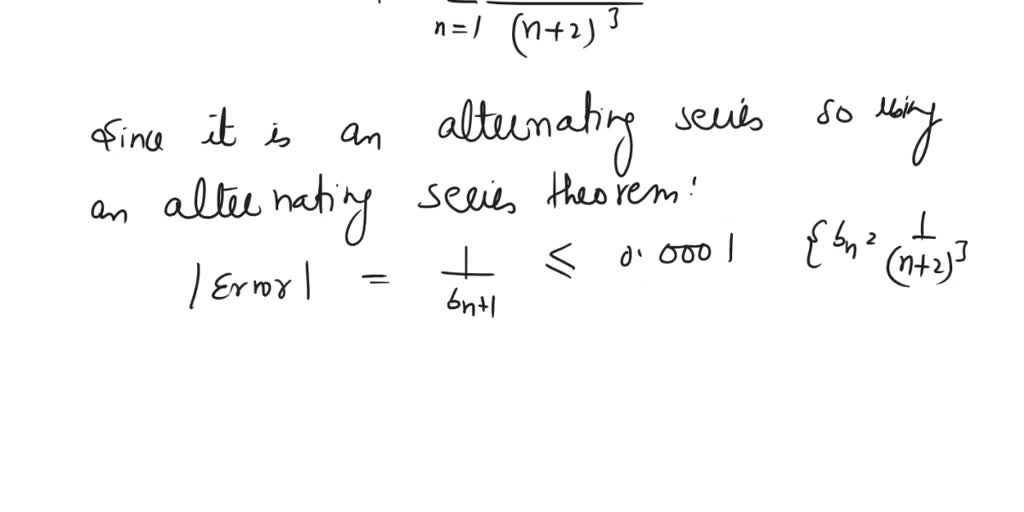 n=1 (n+2)^3
Since it is an alternating series so using
an alternating series theorem:
|Error| = 1/b_{n+1} ≤ 0.0001 {b_n = 1/(n+2)^3